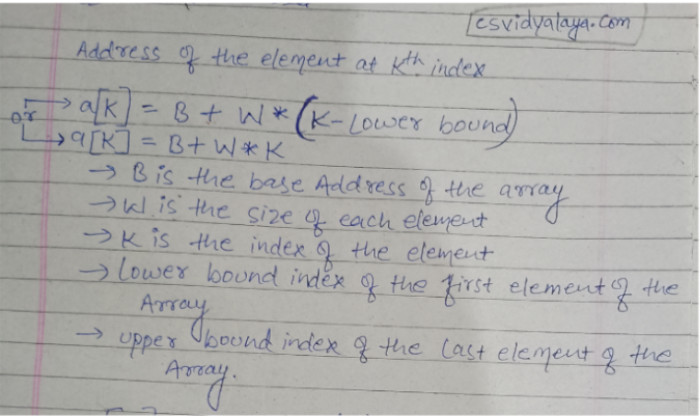 csvidyalaya.com
Address of the element at Kth index
or → a[K] = B + W * (K - Lower bound)
→ a[K] = B + W * K
→ B is the base Address of the array
→ W is the size of each element
→ K is the index of the element
→ Lower bound index of the first element of the
Array
→ upper bound index of the Last element of the
Array.